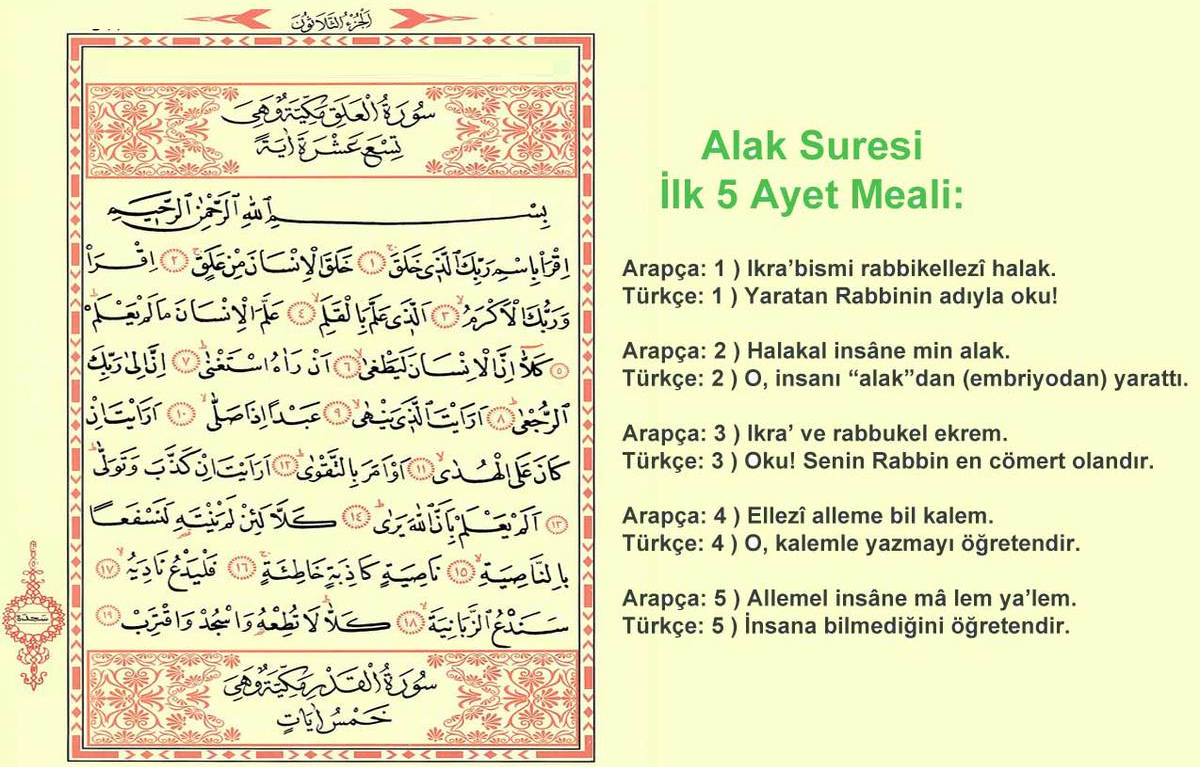 الجزء الثلاثون
سُورَةُ الْعَلَقِ مَكِّيَّةٌ وَهِيَ
تِسْعَ عَشْرَةَ اٰيَةً
بِسْمِ اللّٰهِ الرَّحْمٰنِ الرَّحِيمِ
اِقْرَأْ بِاسْمِ رَبِّكَ الَّذِي خَلَقَۚ ١ خَلَقَ الْاِنْسَانَ مِنْ عَلَقٍۚ ٢ اِقْرَأْ
وَرَبُّكَ الْاَكْرَمُۙ ٣ اَلَّذِي عَلَّمَ بِالْقَلَمِۙ ٤ عَلَّمَ الْاِنْسَانَ مَا لَمْ يَعْلَمْۜ
٥ كَلَّٓا اِنَّ الْاِنْسَانَ لَيَطْغٰىۙ ٦ اَنْ رَاٰهُ اسْتَغْنٰىۜ ٧ اِنَّ اِلٰى رَبِّكَ
الرُّجْعٰىۜ ٨ اَرَاَيْتَ الَّذِي يَنْهٰىۙ ٩ عَبْدًا اِذَا صَلّٰىۜ ١٠ اَرَاَيْتَ اِنْ
كَانَ عَلَى الْهُدٰىۙ ١١ اَوْ اَمَرَ بِالتَّقْوٰىۜ ١٢ اَرَاَيْتَ اِنْ كَذَّبَ وَتَوَلّٰىۜ
١٣ اَلَمْ يَعْلَمْ بِاَنَّ اللّٰهَ يَرٰىۜ ١٤ كَلَّا لَئِنْ لَمْ يَنْتَهِ لَنَسْفَعًا
بِالنَّاصِيَةِۙ ١٥ نَاصِيَةٍ كَاذِبَةٍ خَاطِئَةٍۚ ١٦ فَلْيَدْعُ نَادِيَهُۙ ١٧
سَنَدْعُ الزَّبَانِيَةَۙ ١٨ كَلَّاۜ لَا تُطِعْهُ وَاسْجُدْ وَاقْتَرِبْ ١٩
سجدة
سُورَةُ الْقَدْرِ مَكِّيَّةٌ وَهِيَ
خَمْسُ اٰيَاتٍ
Alak Suresi
İlk 5 Ayet Meali:
Arapça: 1 ) Ikra’bismi rabbikellezî halak.
Türkçe: 1 ) Yaratan Rabbinin adıyla oku!
Arapça: 2 ) Halakal insâne min alak.
Türkçe: 2 ) O, insanı “alak”dan (embriyodan) yarattı.
Arapça: 3 ) Ikra’ ve rabbukel ekrem.
Türkçe: 3 ) Oku! Senin Rabbin en cömert olandır.
Arapça: 4 ) Ellezî alleme bil kalem.
Türkçe: 4 ) O, kalemle yazmayı öğretendir.
Arapça: 5 ) Allemel insâne mâ lem ya’lem.
Türkçe: 5 ) İnsana bilmediğini öğretendir.